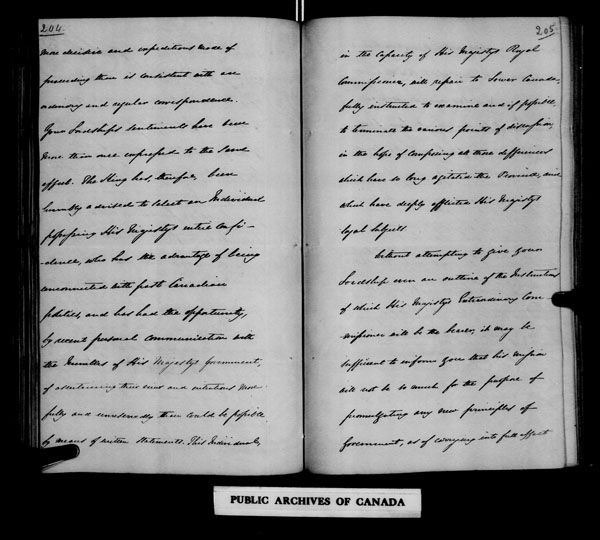 204.
more decisive and expeditious mode of
proceeding than is consistent with an
ordinary and regular correspondence.
Your Lordship's sentiments have been
more than once expressed to the same
effect. The King has, therefore, been
humbly advised to select an Individual
possessing His Majesty's entire confi-
-dence, who has the advantage of being
unconnected with past Canadian
politics, and has had the opportunity,
by recent personal communication with
the Ministers of His Majesty's Government,
of ascertaining their views and intentions more
fully and unreservedly than could be possible
by means of written statements. This Individual,
205
in the capacity of His Majesty's Royal
Commissioner, will repair to Lower Canada,
fully instructed to examine and if possible,
to terminate the various points of discussion,
in the hope of composing all those differences
which have so long agitated the Province, and
which have deeply afflicted His Majesty's
loyal subjects
Without attempting to give your
Lordship even an outline of the Instructions
of which His Majesty's Extraordinary Com-
missioner will be the bearer, it may be
sufficient to inform you that his mission
will not be so much for the purpose of
promulgating any new principles of
Government, as of carrying into full effect
PUBLIC ARCHIVES OF CANADA